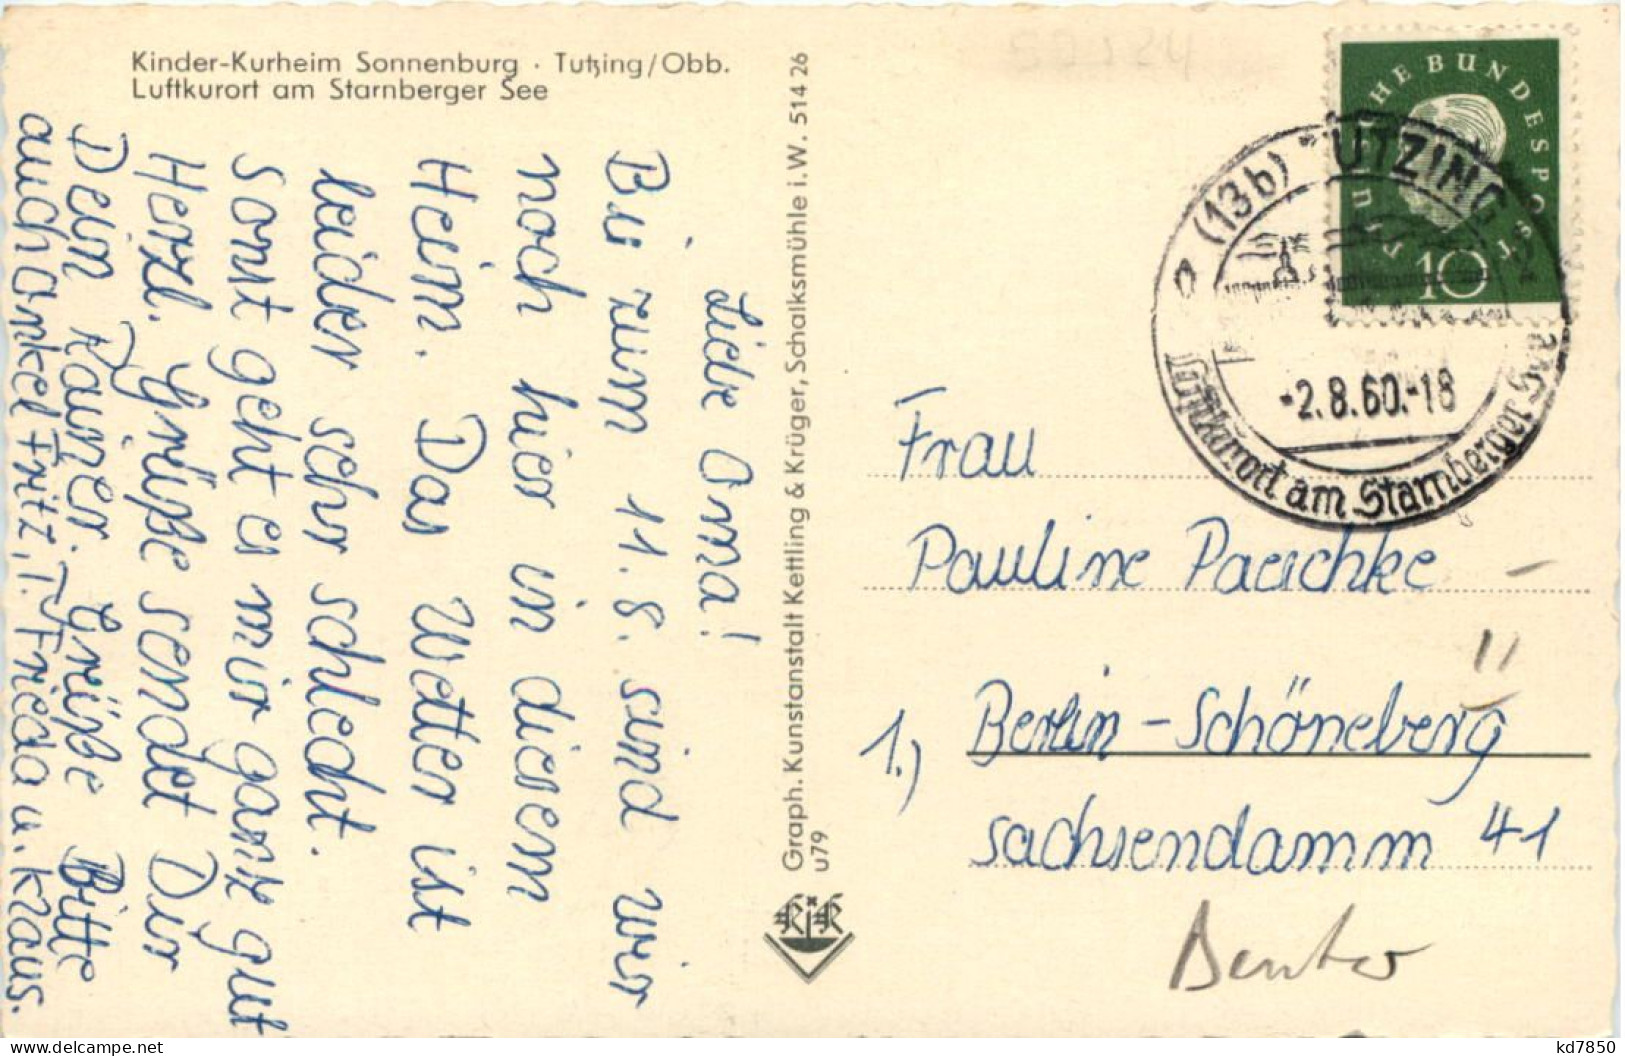 Kinder-Kurheim Sonnenburg · Tutzing/Obb.
Luftkurort am Starnberger See
Liebe Oma!
Bis zum 11.8. sind wir
noch hier in diesem
Heim. Das Wetter ist
leider sehr schlecht.
Sonst geht es mir ganz gut
Herzl. Grüße sendet Dir
Dein Rainer. Grüße Bitte
auch Onkel Fritz, T. Frieda u. Klaus.
Graph. Kunstanstalt Kettling & Krüger, Schalksmühle i.W. 514 26
u79
K K
DEUTSCHE BUNDESPOST
10
(13b) TUTZING
-2.8.60.-18
Luftkurort am Starnberger See
Frau
Pauline Paeschke
1.) Berlin-Schöneberg
Sachsendamm 41
kd7850